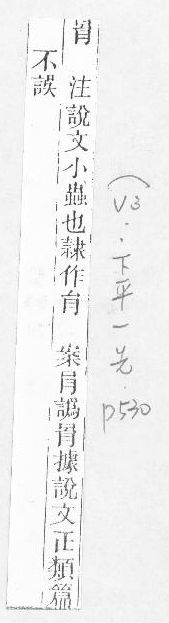 肙 注說文小蟲也隸作肙 案肙譌肙據說文正類篇
不誤
(V3:下平一先.p530